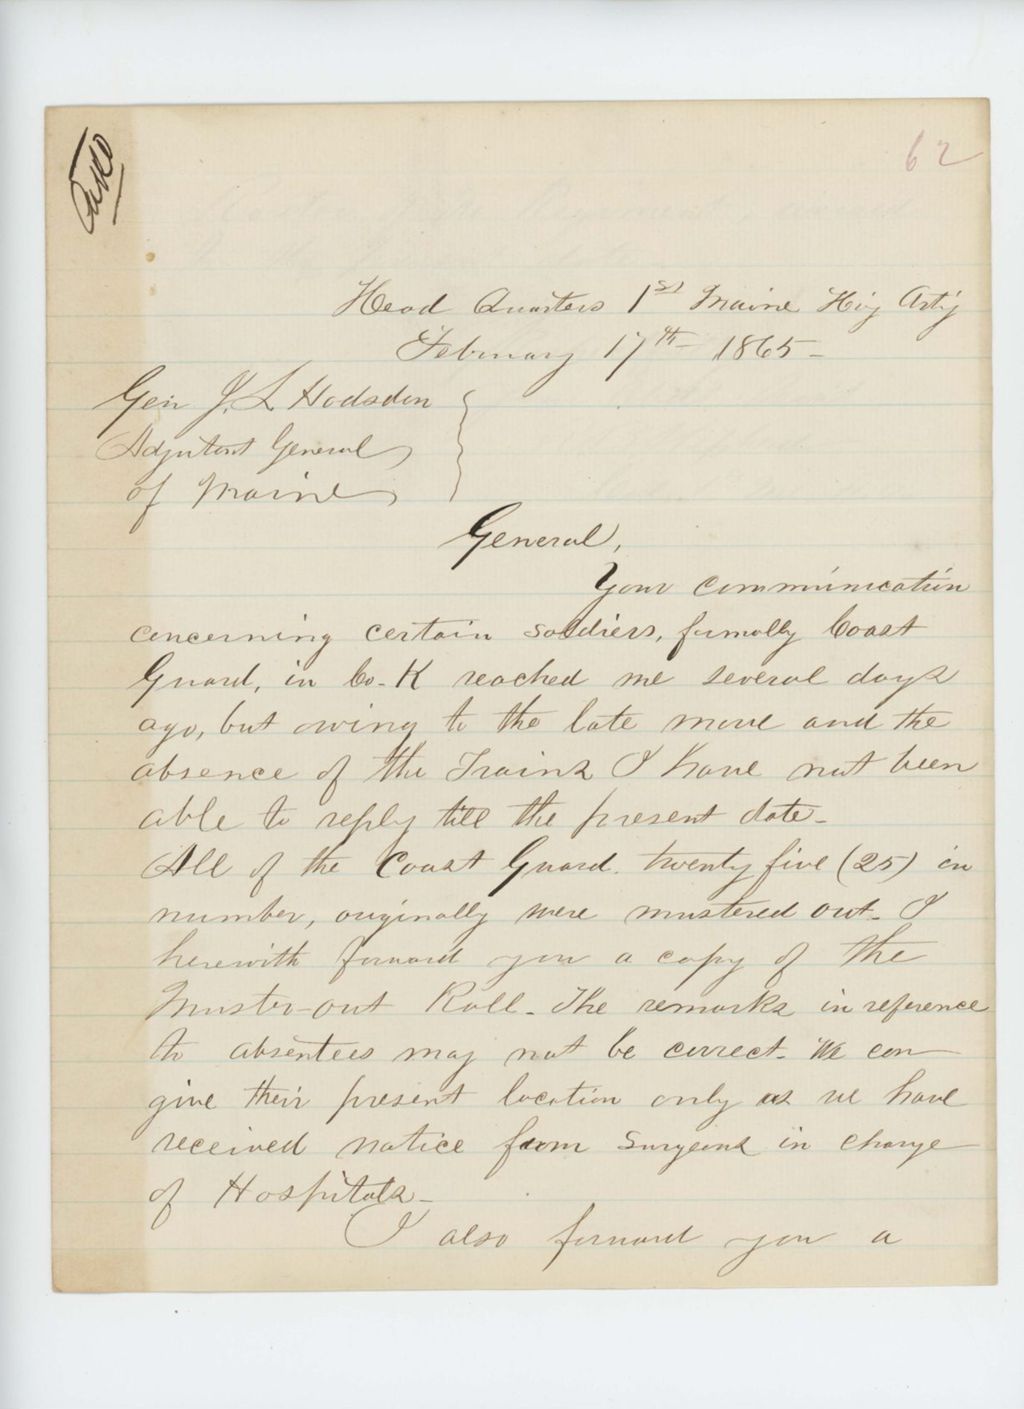 62
Head Quarters 1st Maine Hvy Art'y
February 17th 1865-
Gen J. L Hodsdon
Adjutant General
of Maine
General,
Your communication
concerning certain soldiers, formally Coast
Guard, in Co. K reached me several days
ago, but owing to the late move and the
absence of the Trains I have not been
able to reply till the present date-
All of the Coast Guard. twenty five (25) in
number, originally were mustered out- I
herewith forward you a copy of the
Muster-out Roll- The remarks in reference
to absentees may not be correct- We can
give their present location only as we have
received notice from Surgeons in charge
of Hospitals-
I also forward you a